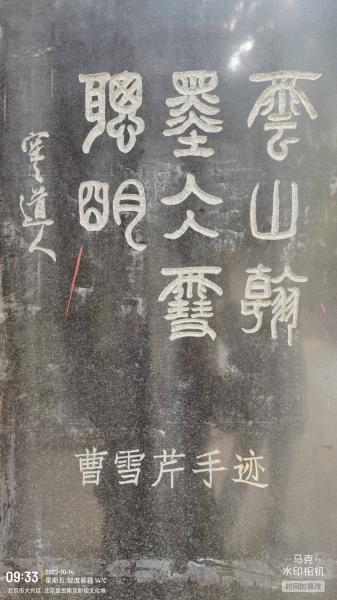 雲山翰
墨冰雪
聰明
空空道人
曹雪芹手迹
09:33
2022-10-14
星期五 轻度雾霾 14℃
北京市大兴区·北京盛世南宫影视文化城
马克
水印相机
时间防篡改